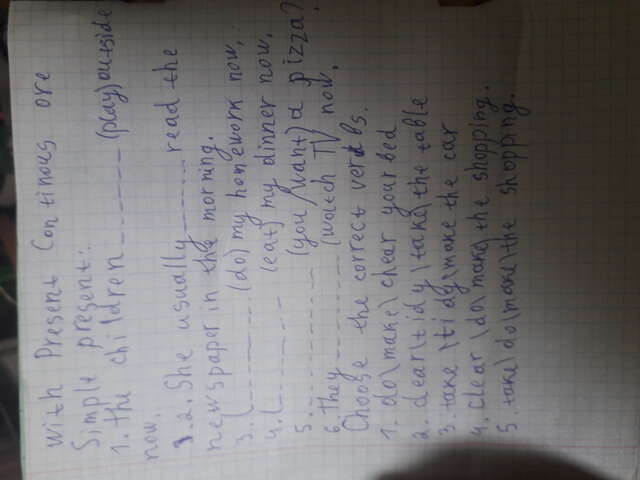 with Present Continous ore
Simple present:
1. the children ------ (play) outside
now.
1.2. She usually ------ read the
newspaper in the morning.
3. I --------- (do) my homework now.
4. I --------- (eat) my dinner now.
5. ----------- (you /want) a pizza?
6. They -------- (watch TV now.
Choose the correct verbs.
1. do\make\clear your bed
2. clear\tidy\take\the table
3. take \tidy\make the car
4. clear \do\make\ the shopping.
5. take\do\make\the shopping.